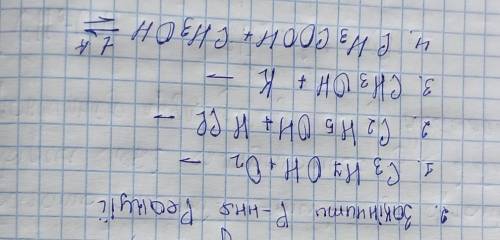 1. Закінчити р-ння реакції
1. C3H7OH + O2 →
2. C2H5OH + HCl →
3. CH3OH + K →
4. CH3COOH + CH3OH ⇄